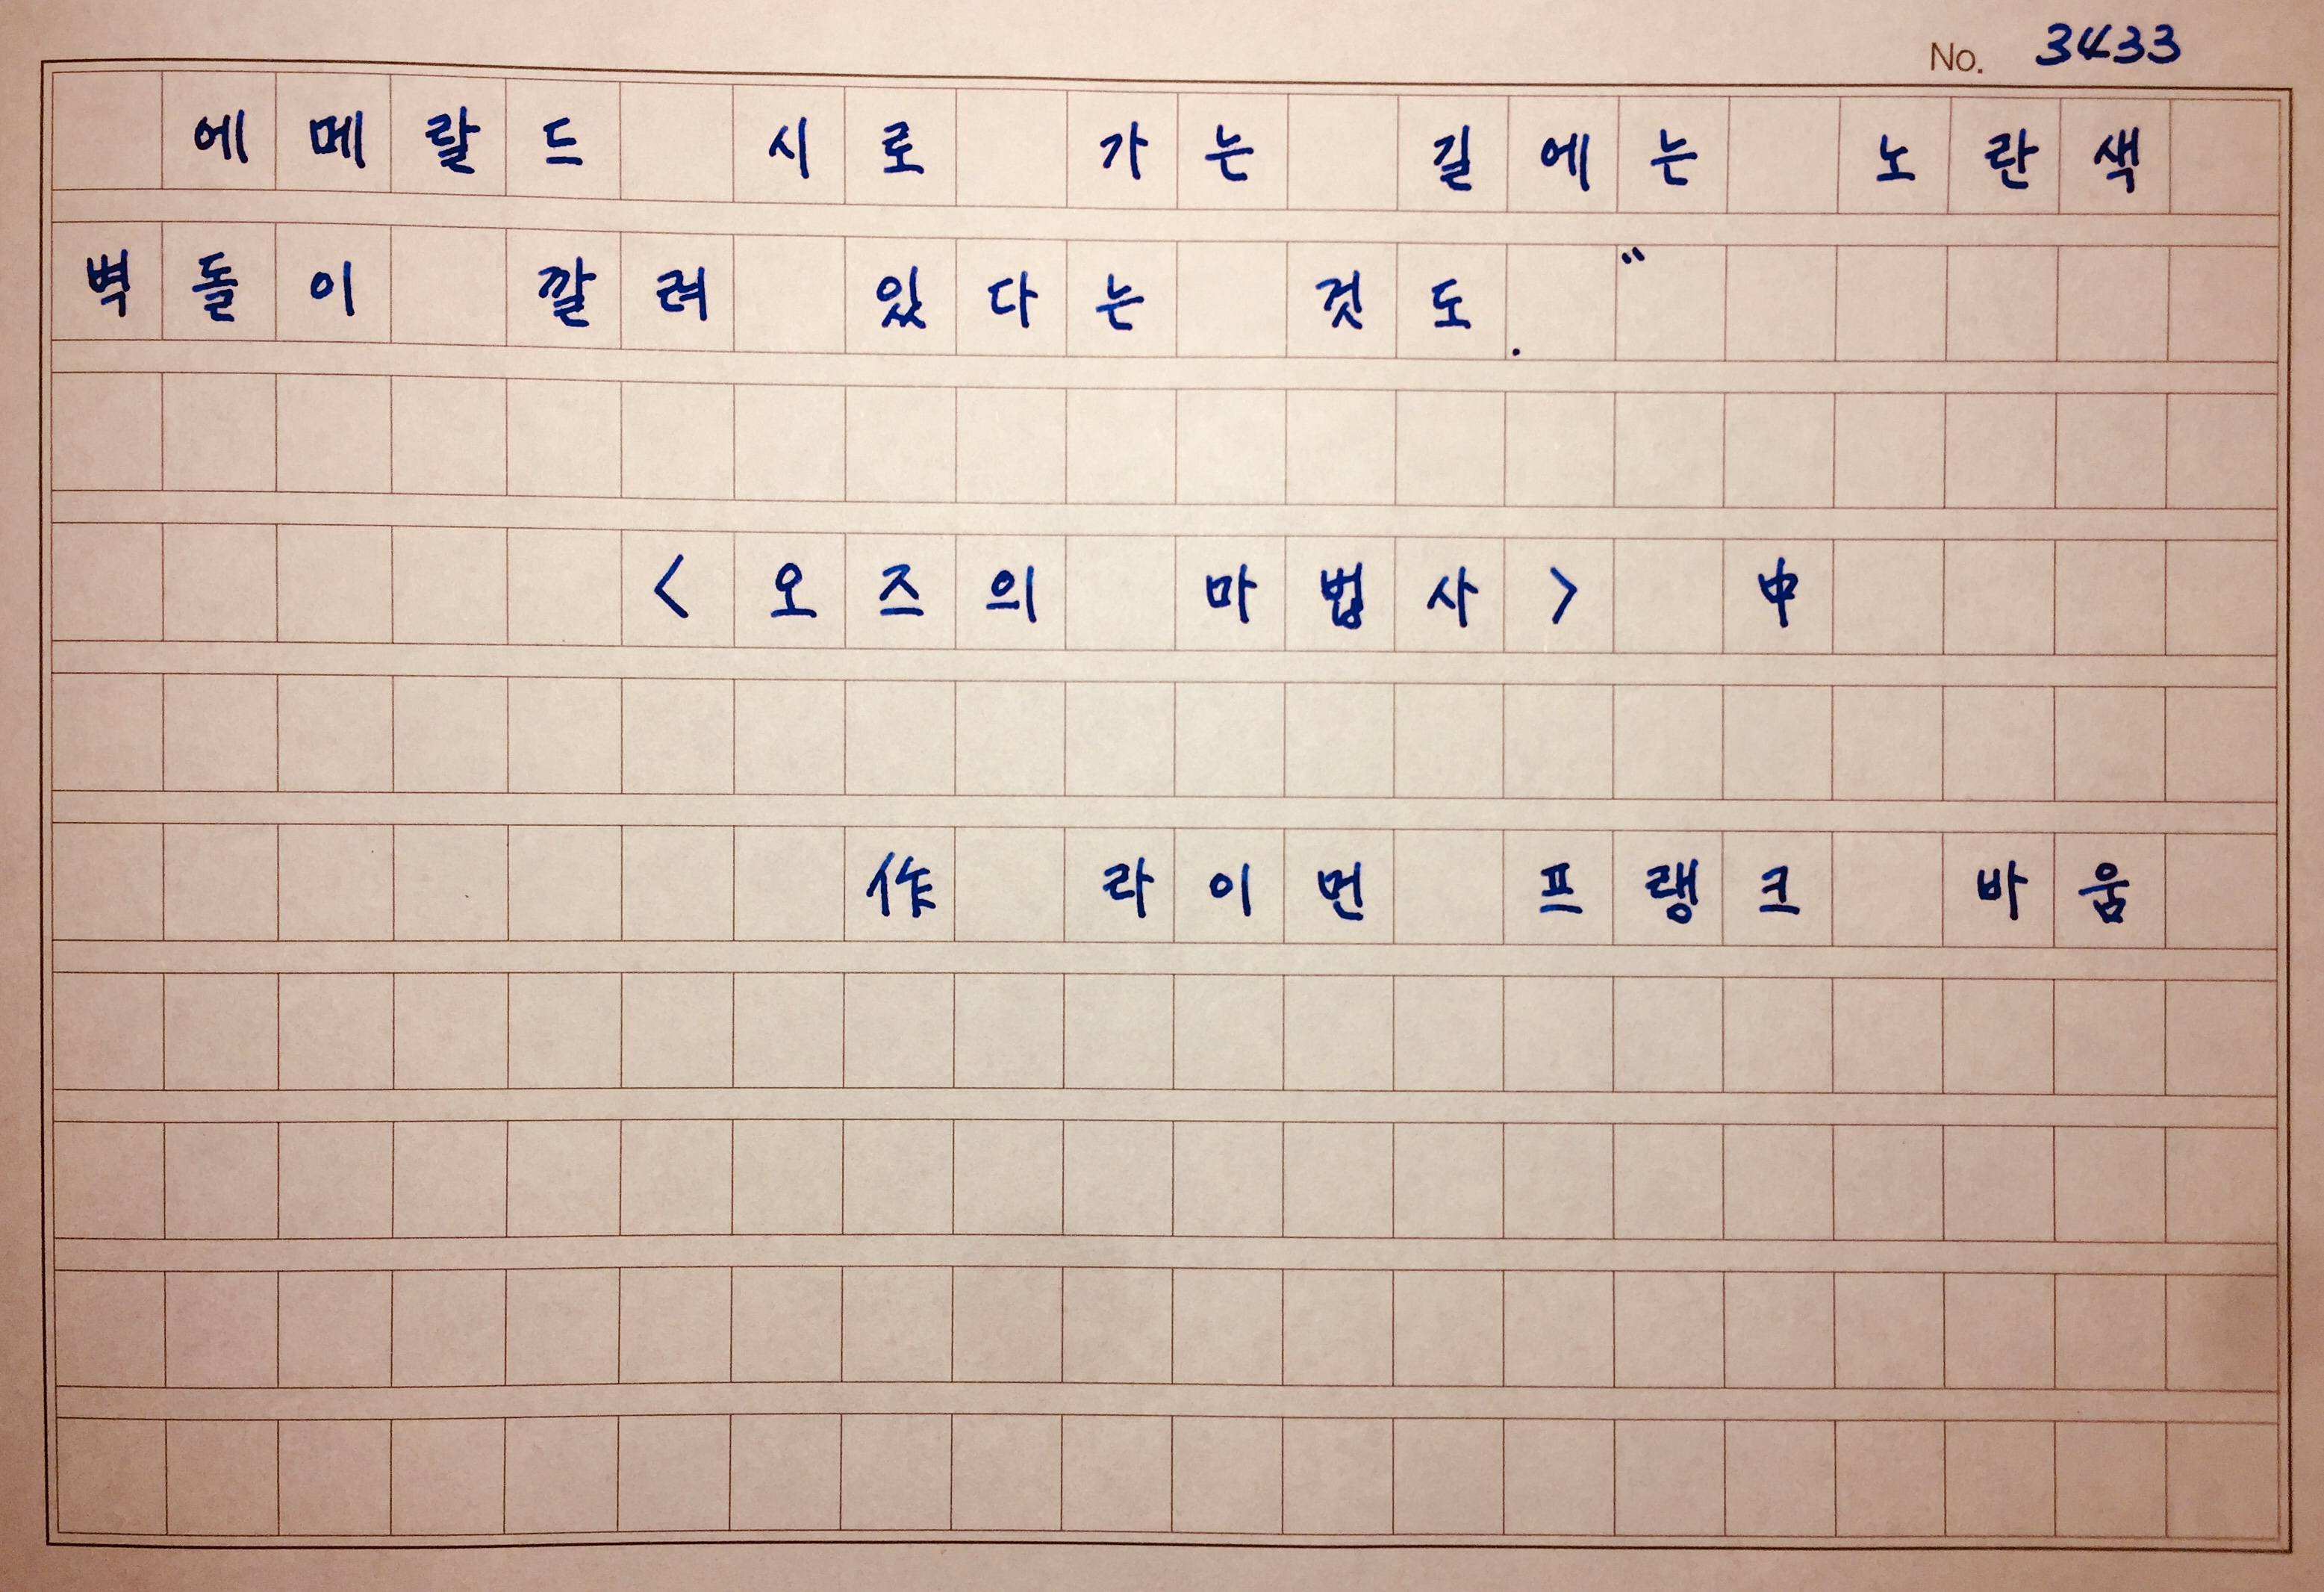 No. 3433
에메랄드 시로 가는 길에는 노란색
벽돌이 깔려 있다는 것도."
<오즈의 마법사> 中
作 라이먼 프랭크 바움